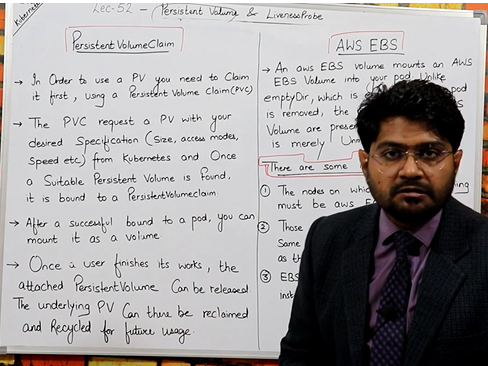 Kubernet
Lec-52 - (Persistent Volume & LivenessProbe
PersistentVolumeClaim
→ In Order to use a PV you need to Claim
it first, using a Persistent Volume Claim(PVC)
→ The PVC request a PV with your
desired Specification (Size, access modes,
Speed etc) from Kubernetes and Once
a Suitable Persistent Volume is Found,
it is bound to a PersistentVolumeclaim.
→ After a successful bound to a pod, you can
mount it as a volume
→ Once a user finishes its works, the
attached PersistentVolume Can be released
The underlying PV Can then be reclaimed
and Recycled for future usage.
AWS EBS
→ An aws EBS volume mounts an AWS
EBS Volume into your pod. Unlike
emptyDir, which is pod
is removed, the
Volume are
is merely
There are some
① The nodes on
must be aws
② Those
Same
as th
③ EBS
inst